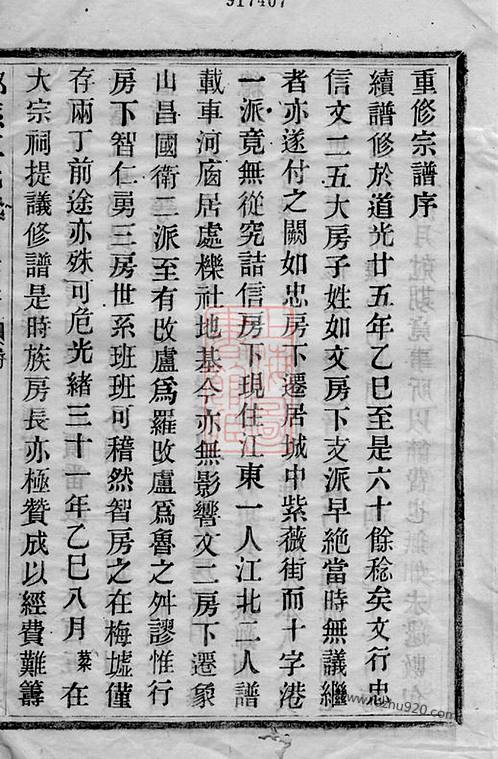 917407
重修宗譜序
續譜修於道光廿五年乙巳至是六十餘稔矣文行忠
信文二五大房子姓如文房下支派早絶當時無議繼
者亦遂付之闕如忠房下遷居城中紫薇街而十字港
一派竟無從究詰信房下現住江東一人江北二人譜
載車河㡳居處櫟社地基今亦無影響文二房下遷象
山昌國衛二派至有改盧爲羅改盧爲魯之舛謬惟行
房下智仁勇三房世系班班可稽然智房之在梅墟僅
存兩丁前途亦殊可危光緒三十一年乙巳八月蓁在
大宗祠提議修譜是時族房長亦極贊成以經費難籌